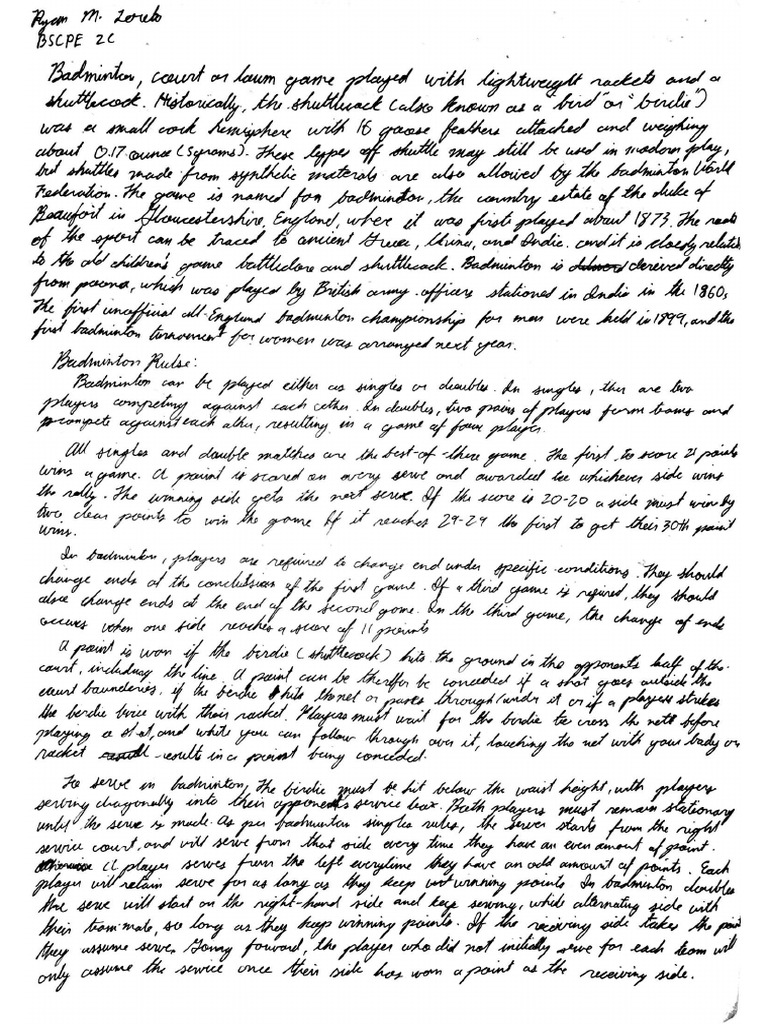 Ryan M. Loreto
BSCPE 2C
Badminton, court or lawn game played with lightweight rackets and a
shuttlecock. Historically, the shuttlecock (also known as a "bird" or "birdie")
was a small cork hemisphere with 16 goose feathers attached and weighing
about 0.17 ounce (5 grams). These types off shuttle may still be used in modern play,
but shuttles made from synthetic materials are also allowed by the badminton World
Federation. The game is named for badminton, the country estate of the duke of
Beaufort in Gloucestershire, England, where it was firsts played about 1873. The roots
of the sport can be traced to ancient Greece, China, and India. and it is closely related
to the old children's game battledore and shuttlecock. Badminton is derived directly
from poona, which was played by British army officers stationed in India in the 1860s
The first unofficial all-England badminton championship for men were held is 1899, and the
first badminton tornament for women was arranged next year.
Badminton Rulse:
Badminton can be played either as singles or doubles. In singles, ther are two
players competing against each other. In doubles, two pairs of players form teams and
compete against each other, resulting in a game of four player.
All singles and double matches are the best-of-three game. The first to score 21 points
wins a game. A point is scored on every serve and awarded to whichever side wins
the rally. The winning side gets the next serve. If the score is 20-20 a side must win by
two clear points to win the game If it reaches 29-29 the first to get their 30th point
wins.
In badminton, players are required to change end under specific conditions. They should
change ends at the conclusion of the first game. If a third game is required, they should
also change ends at the end of the second game. In the third game, the change of ends
occurs when one side reaches a score of 11 points
A point is won if the birdie (shuttlecock) hits the ground in the opponents half of the
court, including the line. A point can be therefor be conceded if a shot goes outside the
court bounderies, if the birdie hits the net or passes through/under it or if a players strikes
the birdie twice with their racket. Players must wait for the birdie to cross the net before
playing a shot, and while you can follow through over it, touching the net with your body or
racket results in a point being conceded.
To serve in badminton, The birdie must be hit below the waist height, with players
serving diagonally into their opponents service box. Both players must remain stationary
until the serve is made. As per badminton singles rules, the server starts from the right
service court, and will serve from that side every time they have an even amount of point.
A player serves from the left everytime they have an odd amount of points. Each
player will retain serve for as long as they keep winning points In badminton doubles
the serve will start on the right-hand side and keep serving, while alternating side with
their team-mate, so long as they keep winning points. If the receiving side takes the point
they assume serve. Going forward, the player who did not initially serve for each team will
only assume the service once their side has won a point as the receiving side.